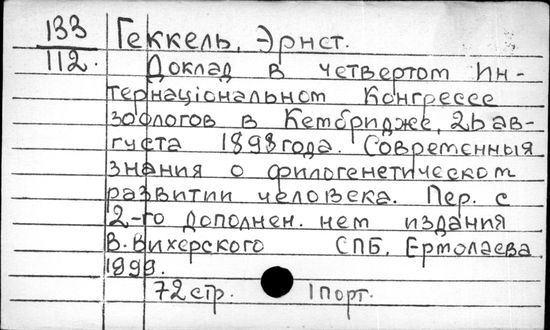 133
112.
Геккель, Эрнст.
Доклад в четвертом Ин-
тернаціональном Конгрессе
зоологов в Кембридже, 26 ав-
густа 1898 года. Современныя
знания о филогенетическом
развитии человека. Пер. с
2-го дополнен. нем издания
В. Вихерского СПБ, Ермолаева
1899.
72 стр. 1 порт.